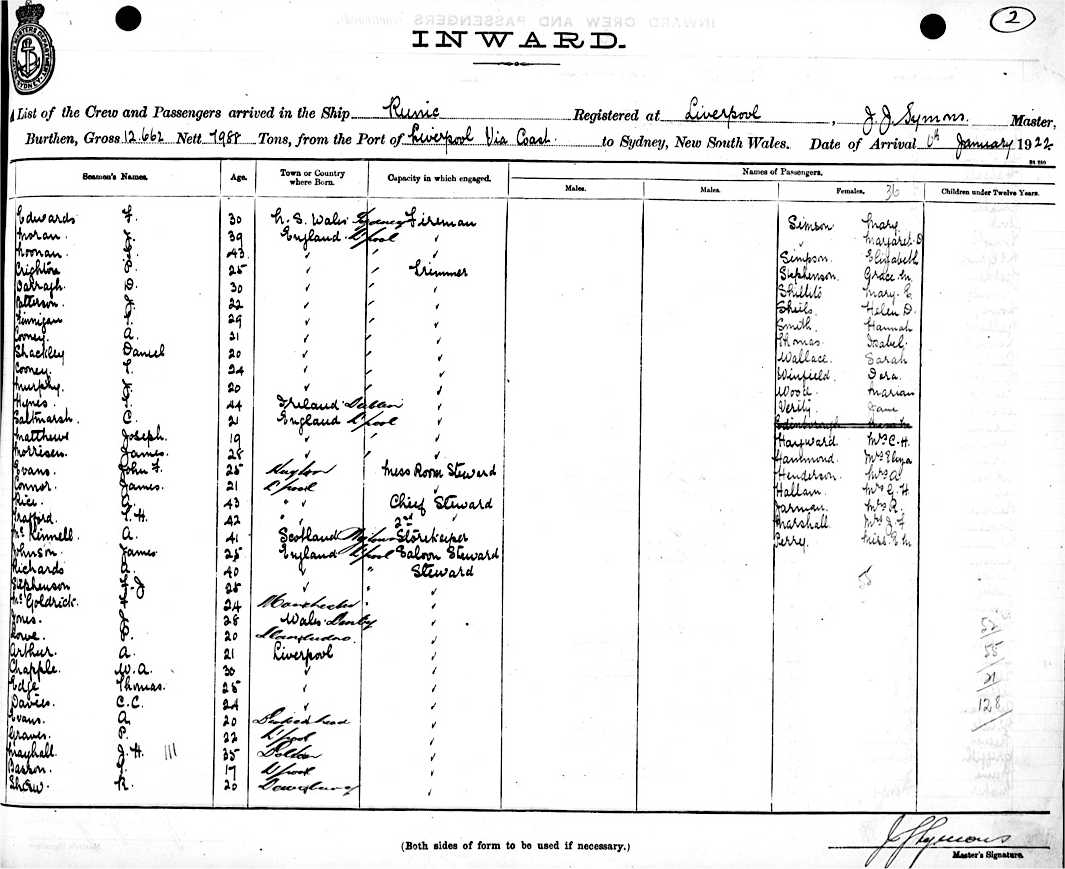 2
INWARD.
List of the Crew and Passengers arrived in the Ship Runic Registered at Liverpool, J. J. Symons. Master,
Burthen, Gross 12.662 Nett 7988 Tons, from the Port of Liverpool Via Coast. to Sydney, New South Wales. Date of Arrival 6th January 1922
Seamen's Names. Age. Town or Country where Born. Capacity in which engaged. Names of Passengers.
Males. Males. Females. 36 Children under Twelve Years.
Edwards F. 30 N. S. Wales Sydney Fireman Simson Mary
Moran. 39 England L'pool " " Margaret D
Noonan. 43 " " " Simpson Elizabeth
Crighton 25 " " Trimmer Stephenson. Grace M.
Darragh D. 30 " " " Shillito Mary. E.
Patterson. 22 " " " Sheils Helen D.
Finnigan 29 " " " Smith. Hannah
Cooney. A. 21 " " " Thomas. Isabel.
Shackley Daniel 20 " " " Wallace. Sarah
Cooney. 24 " " " Winfield. Dora.
Murphy. 20 " " " Wood. Marian
Hynes. 44 Ireland Dublin " Verity. Jane
Saltmarsh. C. 21 England L'pool " Edinborough
Matthews Joseph. 19 " " " Hayward Mrs C. H.
Morrisen. James. 28 " " " Hammond. Mrs Eliza
Evans. John F. 25 Mess Room Steward Henderson. Mrs A
Connor. James. 21 L'pool " Hallam. Mrs E. H.
Rice. 43 " " Chief Steward Jarman. Mrs R.
Trafford. T. H. 42 " " 2nd " Marshall Mrs J. F.
McKinnell. A. 41 Scotland Storekeeper Perry. Miss E M
Johnson. James 25 England L'pool Saloon Steward
Richards 40 " " Steward
Stephenson J 25 " " "
McGoldrick. 24 Manchester " "
Jones. 28 Wales "
Rowe. 20 "
Arthur. A. 21 Liverpool "
Chapple. W. A. 30 " "
Edge Thomas. 25 " "
Davies. C. C. 24 " "
Evans. A 20 "
Graves. P. 22 L'pool "
Mayhall. J. H. 35 "
Basson. 17 L'pool "
Shaw. R. 20 Dewsbury "
55
21
128
(Both sides of form to be used if necessary.)
J J Symons
Master's Signature.